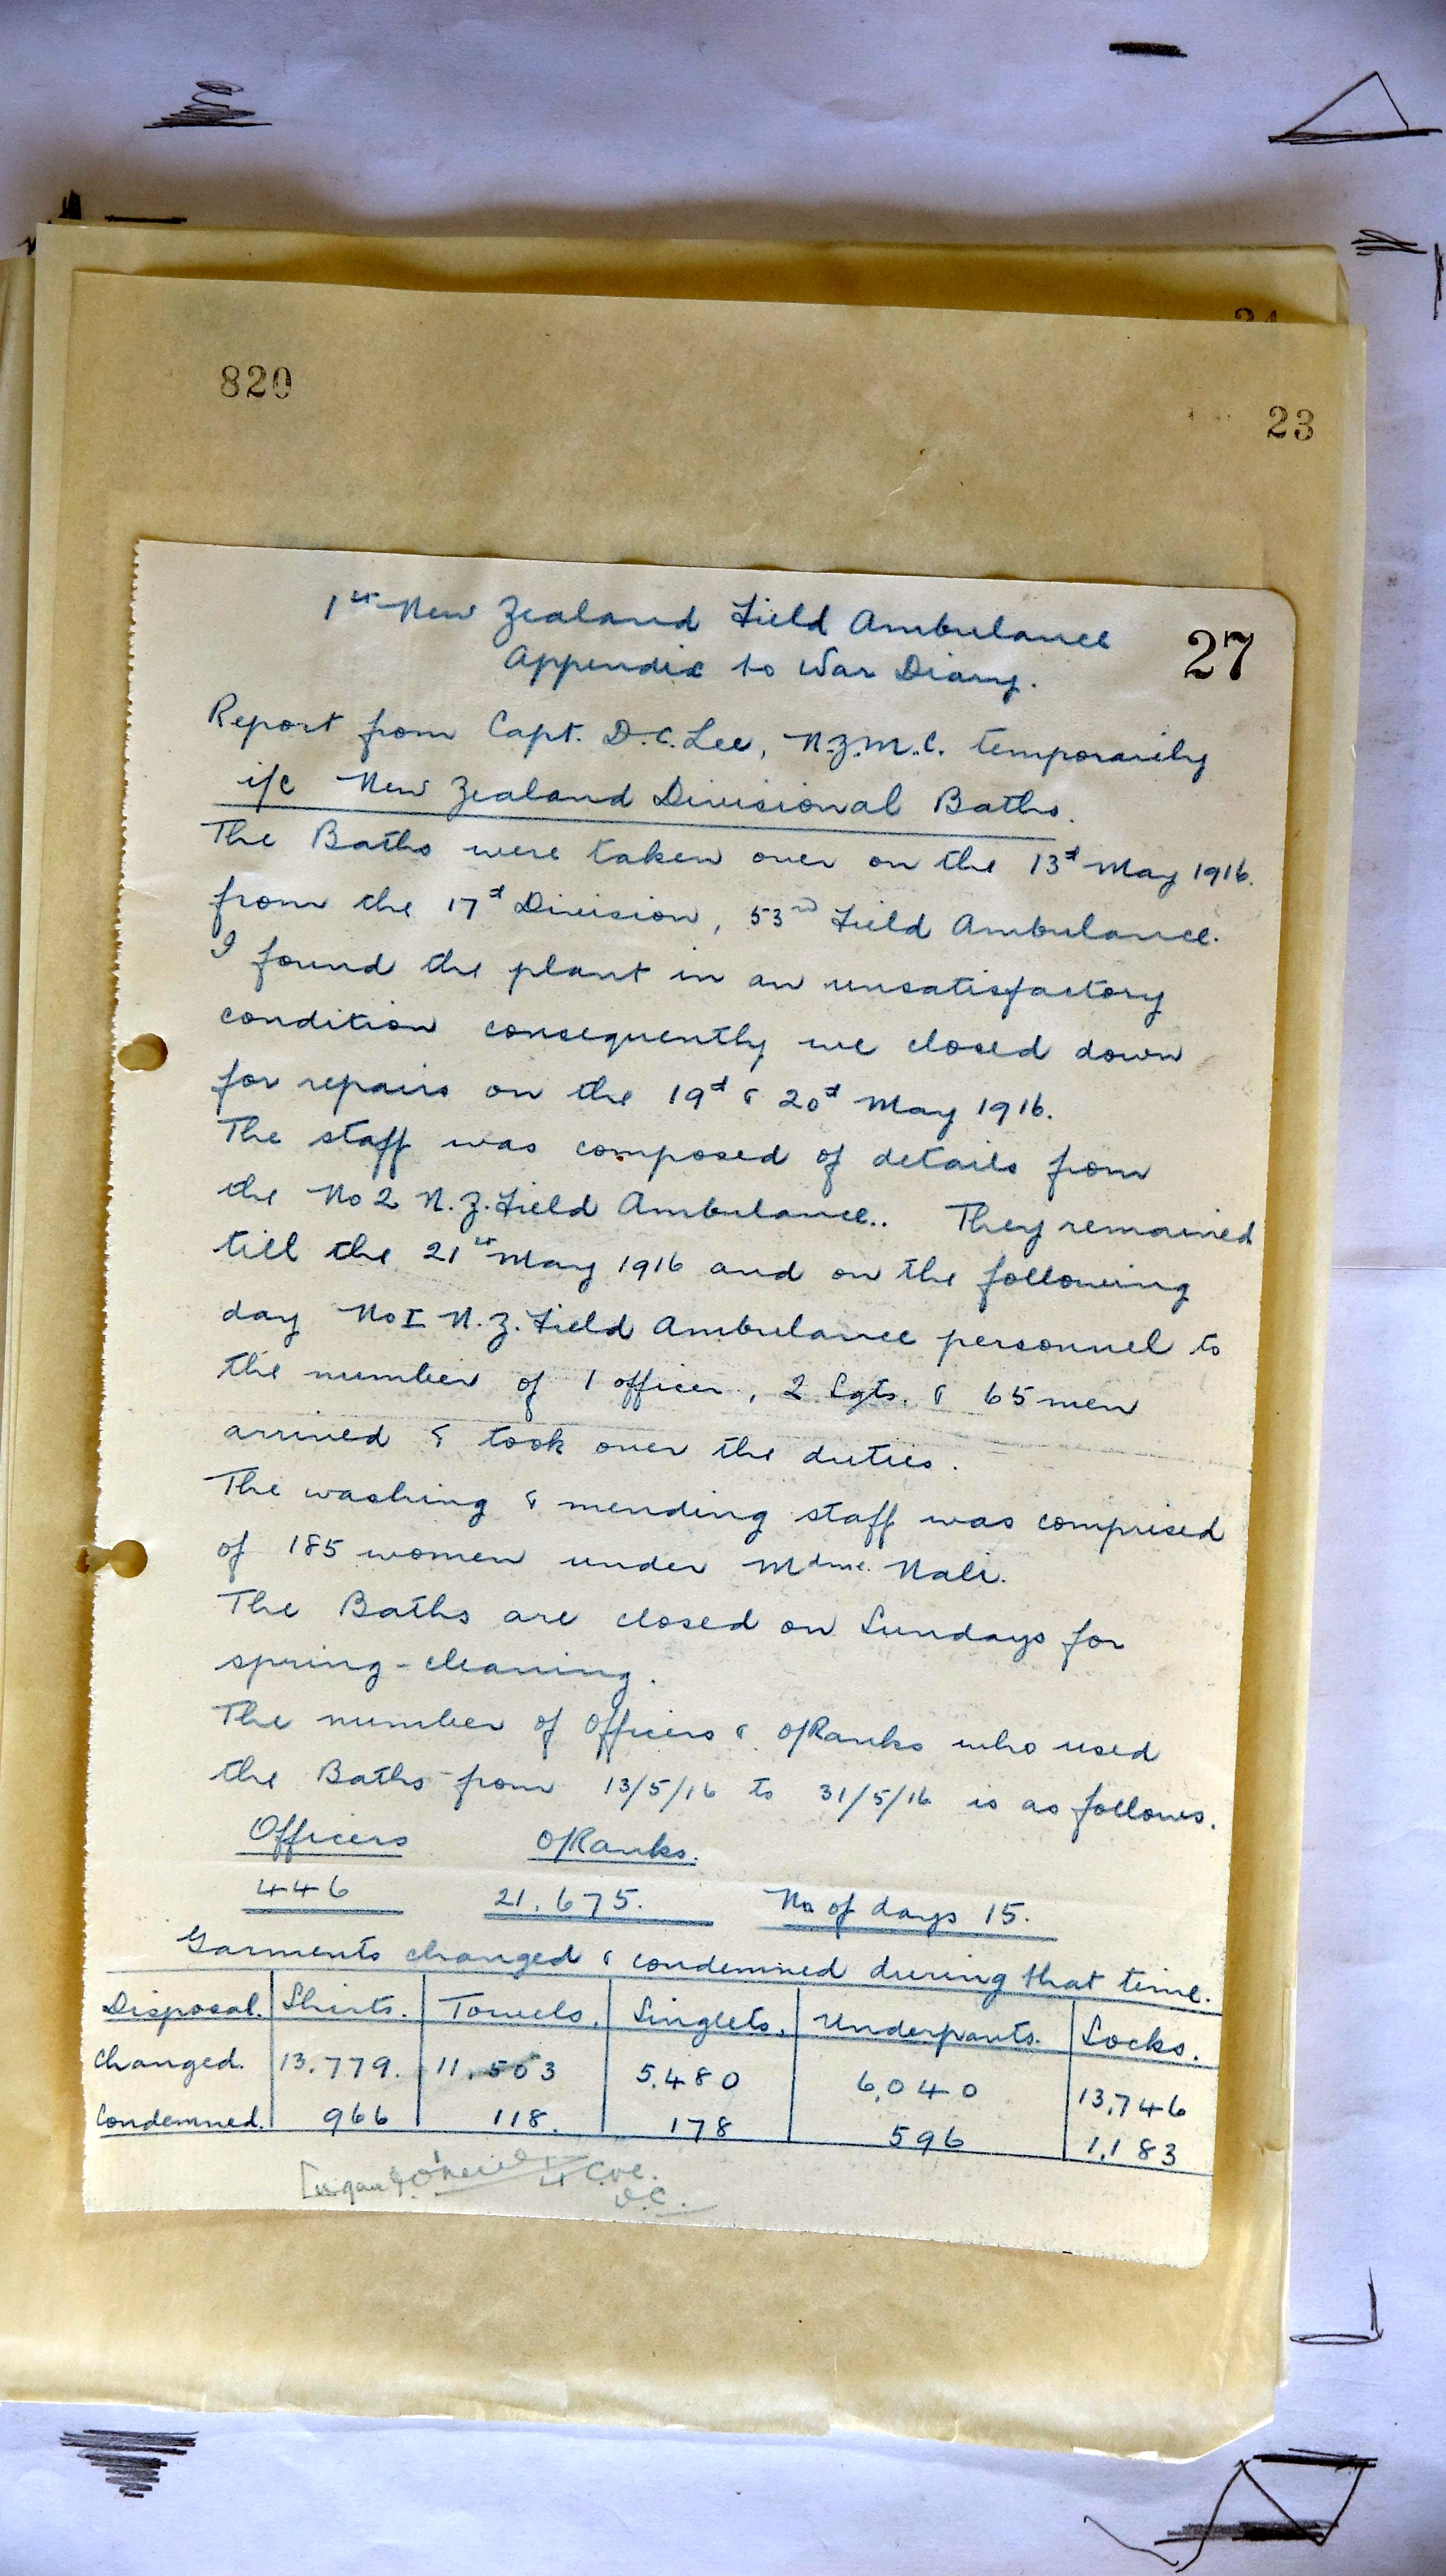 820
23
1st New Zealand Field Ambulance
27
Appendix to War Diary.
Report from Capt. D.C. Lee, N.Z.M.C. temporarily
i/c New Zealand Divisional Baths.
The Baths were taken over on the 13th May 1916.
from the 17th Division, 53rd Field Ambulance.
I found the plant in an unsatisfactory
condition consequently we closed down
for repairs on the 19th & 20th May 1916.
The staff was composed of details from
the No 2 N.Z. Field Ambulance.. They remained
till the 21st May 1916 and on the following
day No I N.Z. Field Ambulance personnel to
the number of 1 officer, 2 Sgts. & 65 men
arrived & took over the duties.
The washing & mending staff was comprised
of 185 women under Mdme. Nali.
The Baths are closed on Sundays for
spring-cleaning.
The number of Officers & O/Ranks who used
the Baths from 13/5/16 to 31/5/16 is as follows.
Officers O/Ranks.
446 21,675. No of days 15.
Garments changed & condemned during that time.
Disposal. Shirts. Towels. Singlets. Underpants. Socks.
Changed. 13,779. 11,503 5,480 6,040 13,746
Condemned. 966 118. 178 596 1,183